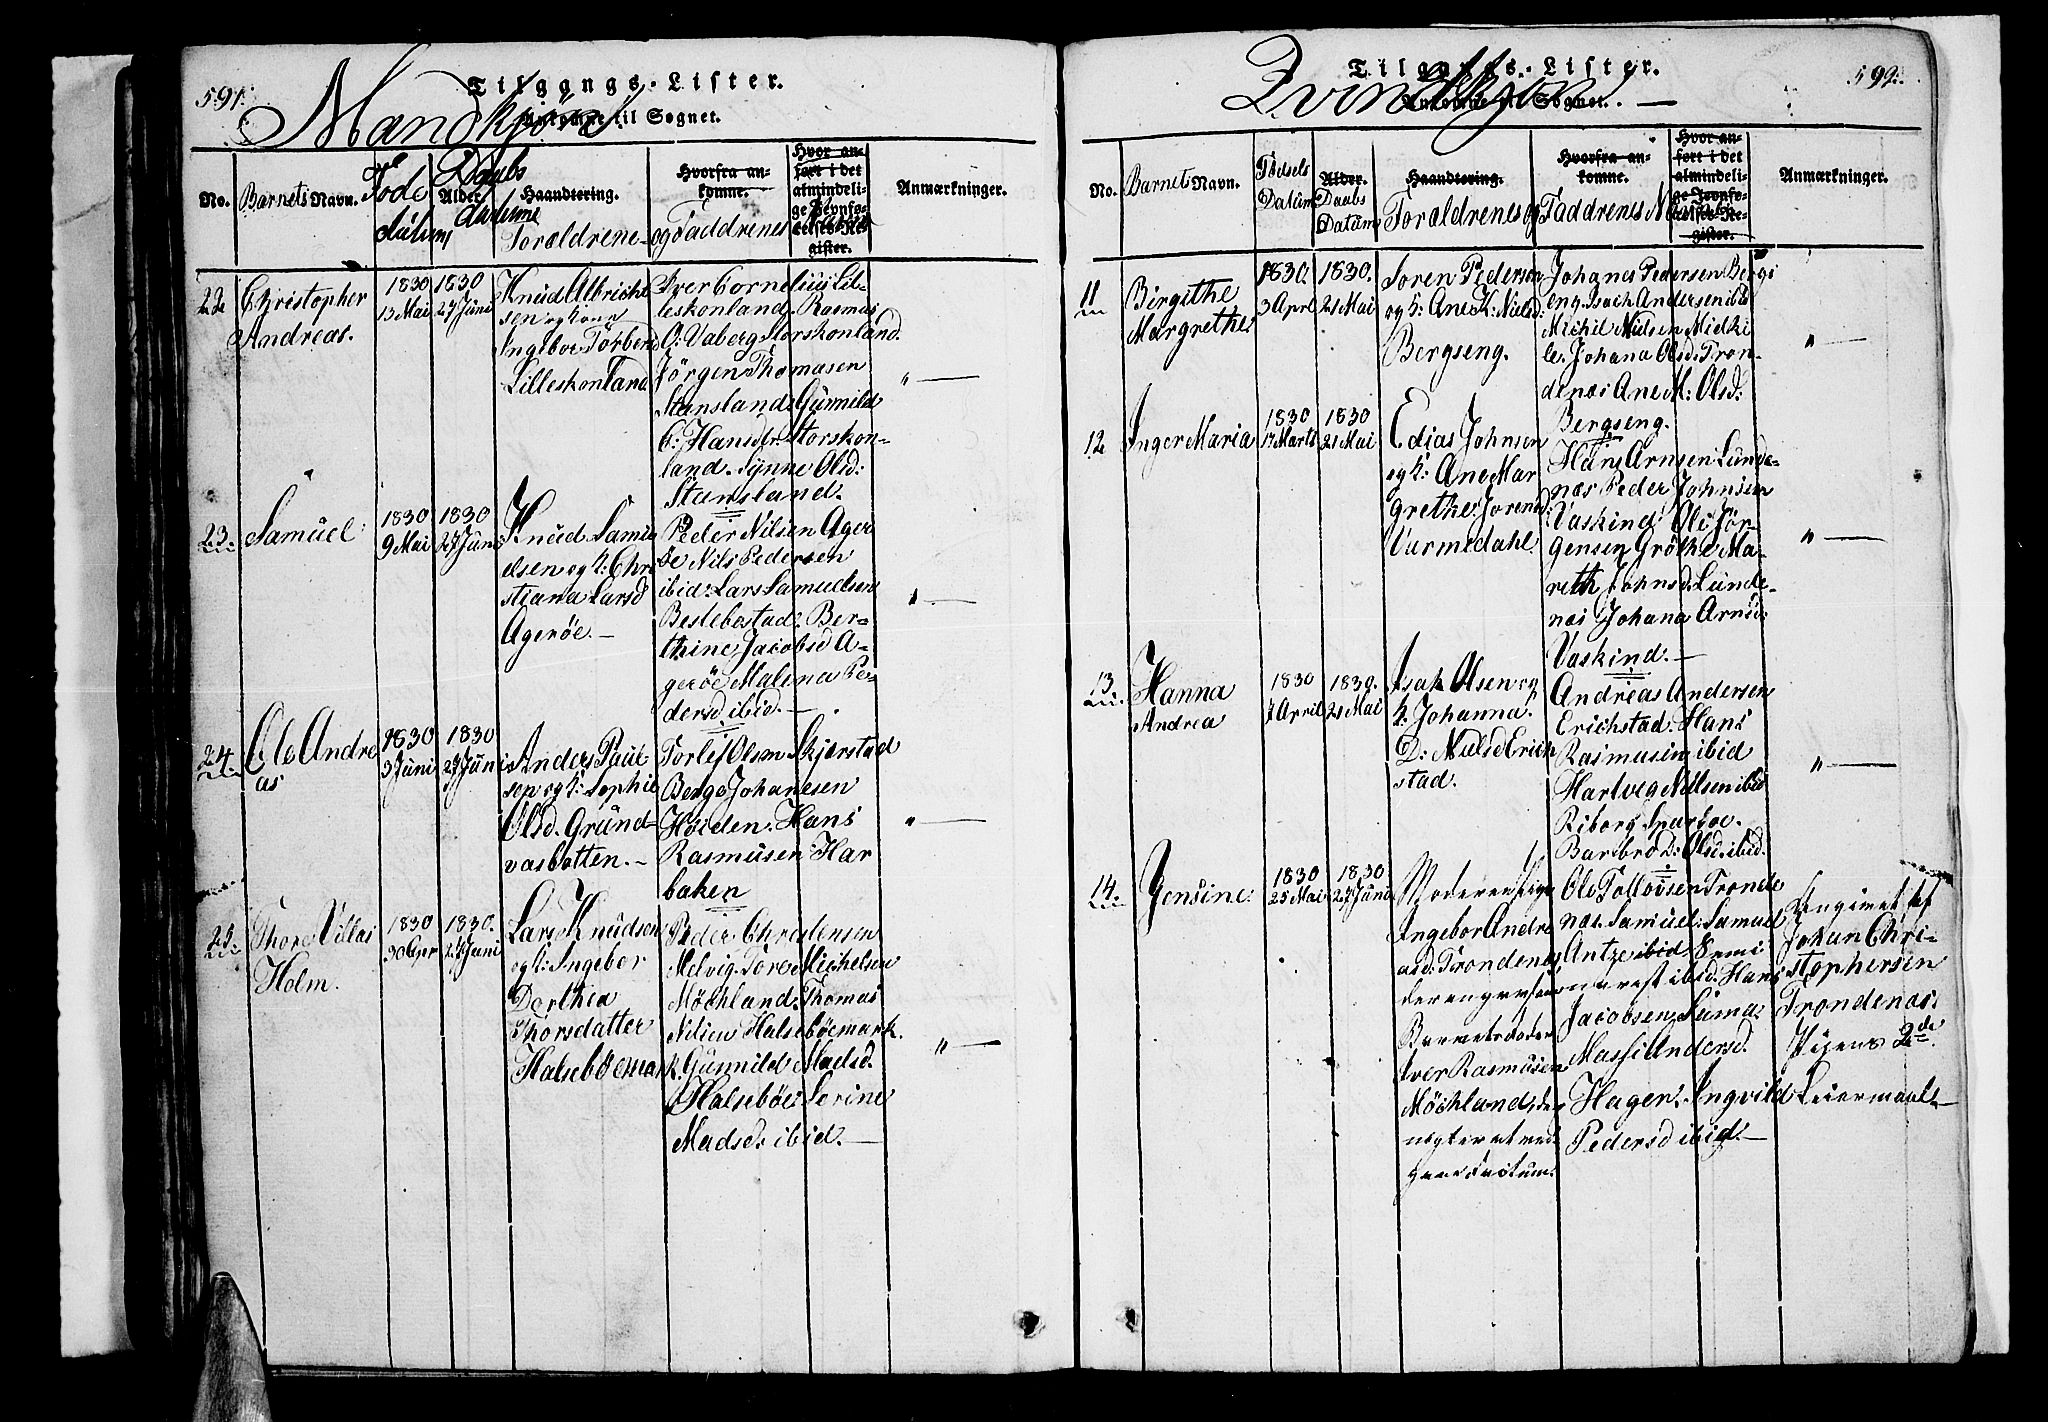 591.
Tilgangs-Lister.
Mandkjøn
Ankomne til Sognet.
No.
Barnets Navn.
Føde
datum
Daabs
Alder.
datume
Haandtering.
Forældrene
Hvorfra an-
komne.
og Faddrenes
Hvor an-
ført i det
almindeli-
ge Jevnfø-
relses-Re-
gister.
Anmærkninger.
22
Christopher
Andreas.
1830
13 Mai
1830
27 Juni
Knud Albricht
sen og kone
Ingebor Torbend
Lilleskonland
Iver Cornelius Lil-
leskonland. Rasmus
O: Vaberg Storskonland.
Jörgen Thomasen
Stansland. Gunnild
C: Hansd Storskon-
land. Synne Olsd:
Stansland.
"
23.
Samuel
1830
9 Mai
1830
27 Juni
Knud Samu
elsen og k: Chri
stiana Larsd
Ageröe.
Peder Nilsen Agerö
e Nils Pedersen
ibid: Lars Samuelsen
Beslebostad: Ber-
thine Jacobsd A-
geröe Malena Pe-
dersd ibid.
"
24.
Ole Andre
as
1830
3 Juni
1830
27 Juni
Anders Paul
sen og k: Sophie
Olsd. Grund-
vasbotten.
Torlef Olsen Skjærstad
Berge Johanesen
Höiden. Hans
Rasmusen Har
baken
"
25.
Thore Villas
Holm.
1830
30 Apr
1830.
27 Juni
Lars Knudsen
og k: Ingebor
Dorthea
Thorsdatter
Halseböemar
Peder Christensen
Melvig. Tore Mickelsen
Möchland. Thomas
Nilsen Halseböemark.
k. Gunnild Madsd.
Halseböe: Serine
Madsd: ibid.
"
592.
Tilgangs-Lister.
Qvindekjøn
Ankomne til Sognet.
No.
Barnets Navn.
Fødsels
Datum
Alder.
Daabs
Datum
Haandtering.
Forældrenes og
Hvorfra an-
komne.
Faddrenes Navne
Hvor an-
ført i det
almindeli-
ge Jevnfø-
relses-Re-
gister.
Anmærkninger.
11
Birgithe
Margrethe
1830.
3 Apri
1830.
21 Mai
Soren Pederson
og k: Ane K: Nielsd:
Bergseng.
Johanes Pedersen Bergs
eng. Isach Andersen ibid
Michel Nielsen Midki
le. Johana Olsd. Tron-
denæs Ane M: Olsd:
Bergseng.
"
12
Inger Maria
1830
17 Marts
1830
21 Mai
Edias Johnsen
og k: Ane Mar
grethe: Jorensd:
Varmedahl.
Hans Arnsen Lunde-
næs Peder Johnsen
Vaskind: Ole Jör-
gensen Gröthe Ma-
reth Johnsd. Lunde-
næs Johana Arnsd:
Vaskind.
"
13.
Hanna
Andrea
1830
7 April
1830.
21 Mai
Isak Olsen og
k: Johanna.
D: Nielsd Erich
stad.
Andreas Andersen
Erichstad. Hans
Rasmusen ibid
Hartvig Nielsen ibid
Riborg
Barbro D: Olsd. ibid.
"
14.
Jensine:
1830
25 Mai
1830
27 Juni
Moderen Pige
Ingebor Andre
asd: Trondenes
Barnefader
Iver Rasmusen
Möchland, den
Ole Tollovsen Tronde
næs. Samuel Samuel
Antze ibid.
ibid. Hans
Jacobsen
Massi Andersd.
Hagen. Ingvild
Pedersd ibid.
Angivet af
Johan Chri-
stophersen
Trondenæs
Pigens 2de
Leiermaal